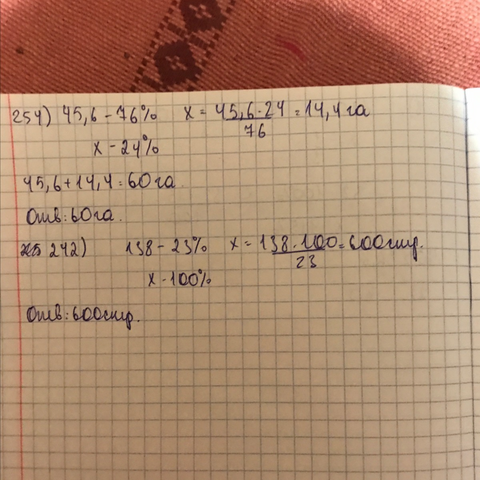 254) 45,6 - 76% x = 45,6·24/76 = 14,4 га
x - 24%
45,6 + 14,4 = 60 га
Отв: 60 га.
242) 138 - 23% x = 138·100/23 = 600 стр.
x - 100%
Отв: 600 стр.